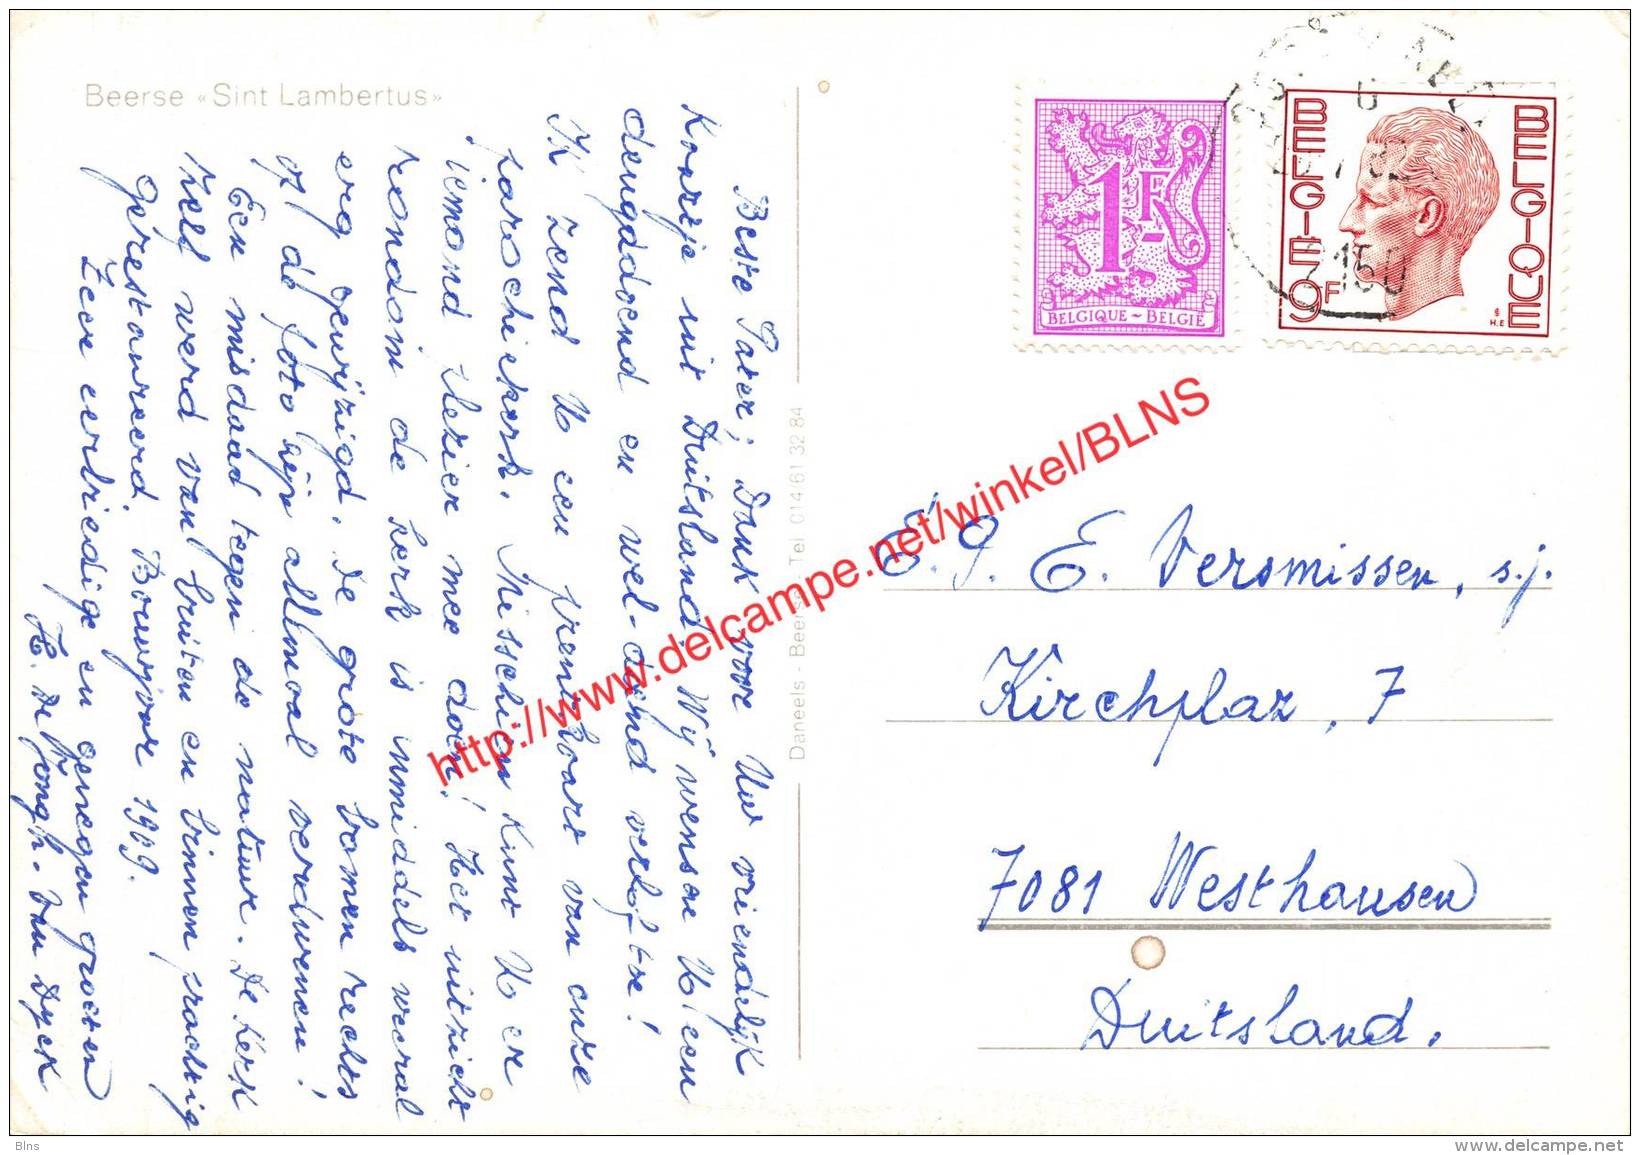 Beerse «Sint Lambertus»
Beste Pater; Dank voor Uw vriendelijk
kaartje uit Duitsland. Wij wensen U een
deugddoend en wel-doend verlofke!
Ik zend U een prentkaart van onze
parochiekerk. Misschien kunt U er
iemand plezier mee doen! Het uitzicht
rondom de kerk is inmiddels weeral
erg gewijzigd. De grote bomen rechts
op de foto zijn allemaal verdwenen!
Een misdaad tegen de natuur. De kerk
zelf werd van buiten en binnen prachtig
gerestaureerd. Bouwjaar 1909.
Zeer eerbiedige en genegen groeten
De Jongh. Van Dyck
Daneels - Beerse Tel 014 61 32 84
1F
BELGIQUE - BELGIË
BELGIE
BELGIQUE
9F
H.E
6
3150
E. P. E. Versmissen, s.j.
Kirchplaz, 7
7081 Westhausen
Duitsland.
http://www.delcampe.net/winkel/BLNS
Blns
www.delcampe.net